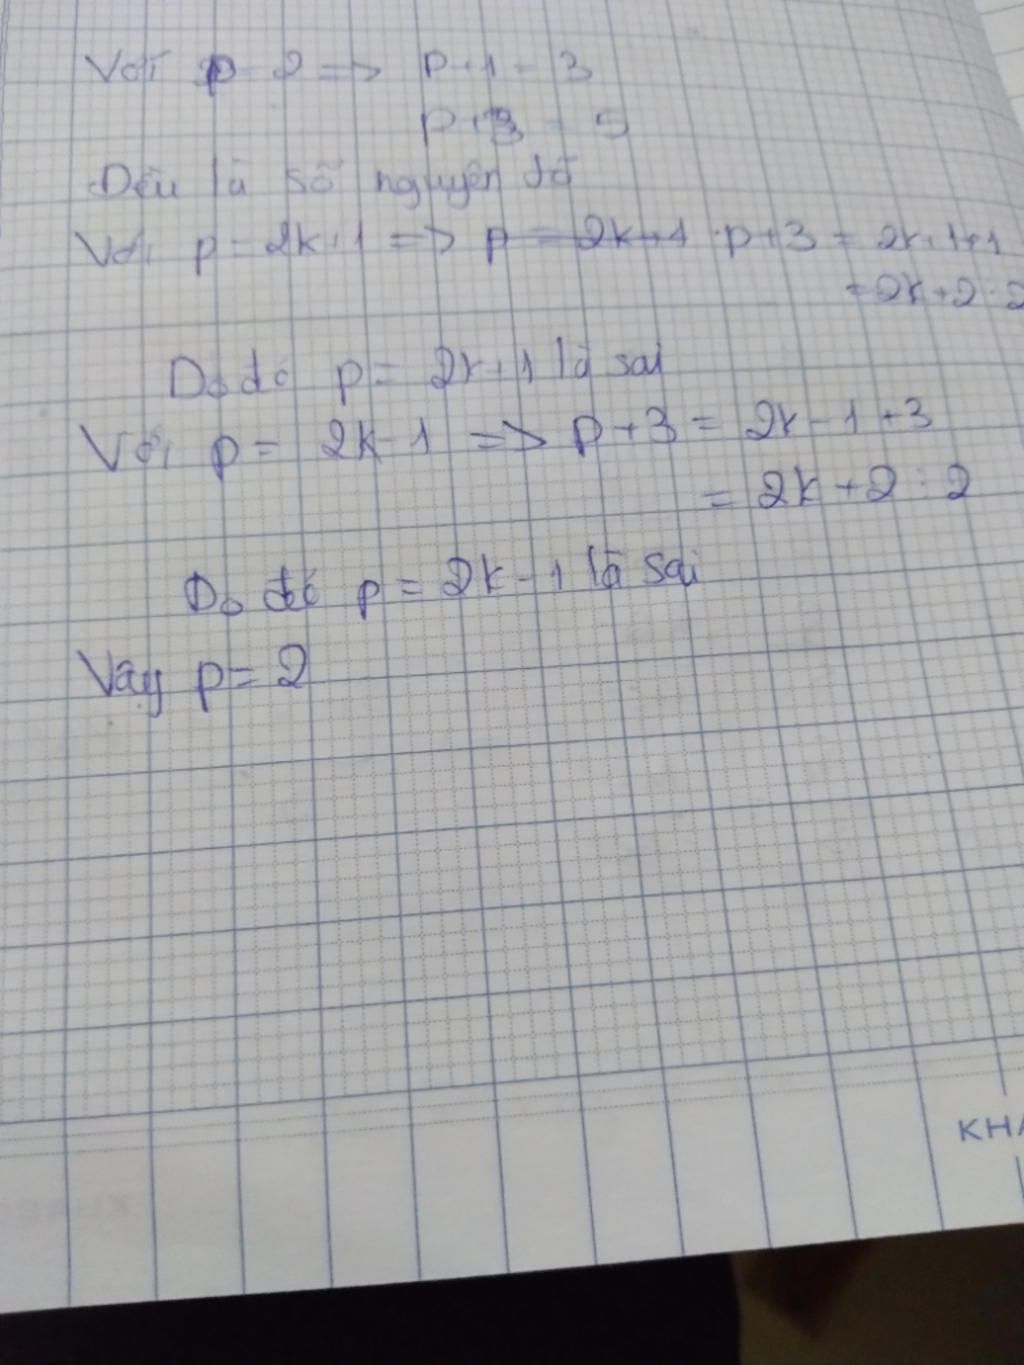 Với p = 2 => p+1 = 3
p+3 = 5
Đều là số nguyên tố
Với p = 2k+1 => p = 2k+1 p+3 = 2k+1+1
= 2k+2 : 2
Do đó p = 2k+1 là sai
Với p = 2k-1 => p+3 = 2k-1+3
= 2k+2 : 2
Do đó p = 2k-1 là sai
Vậy p = 2
KHA